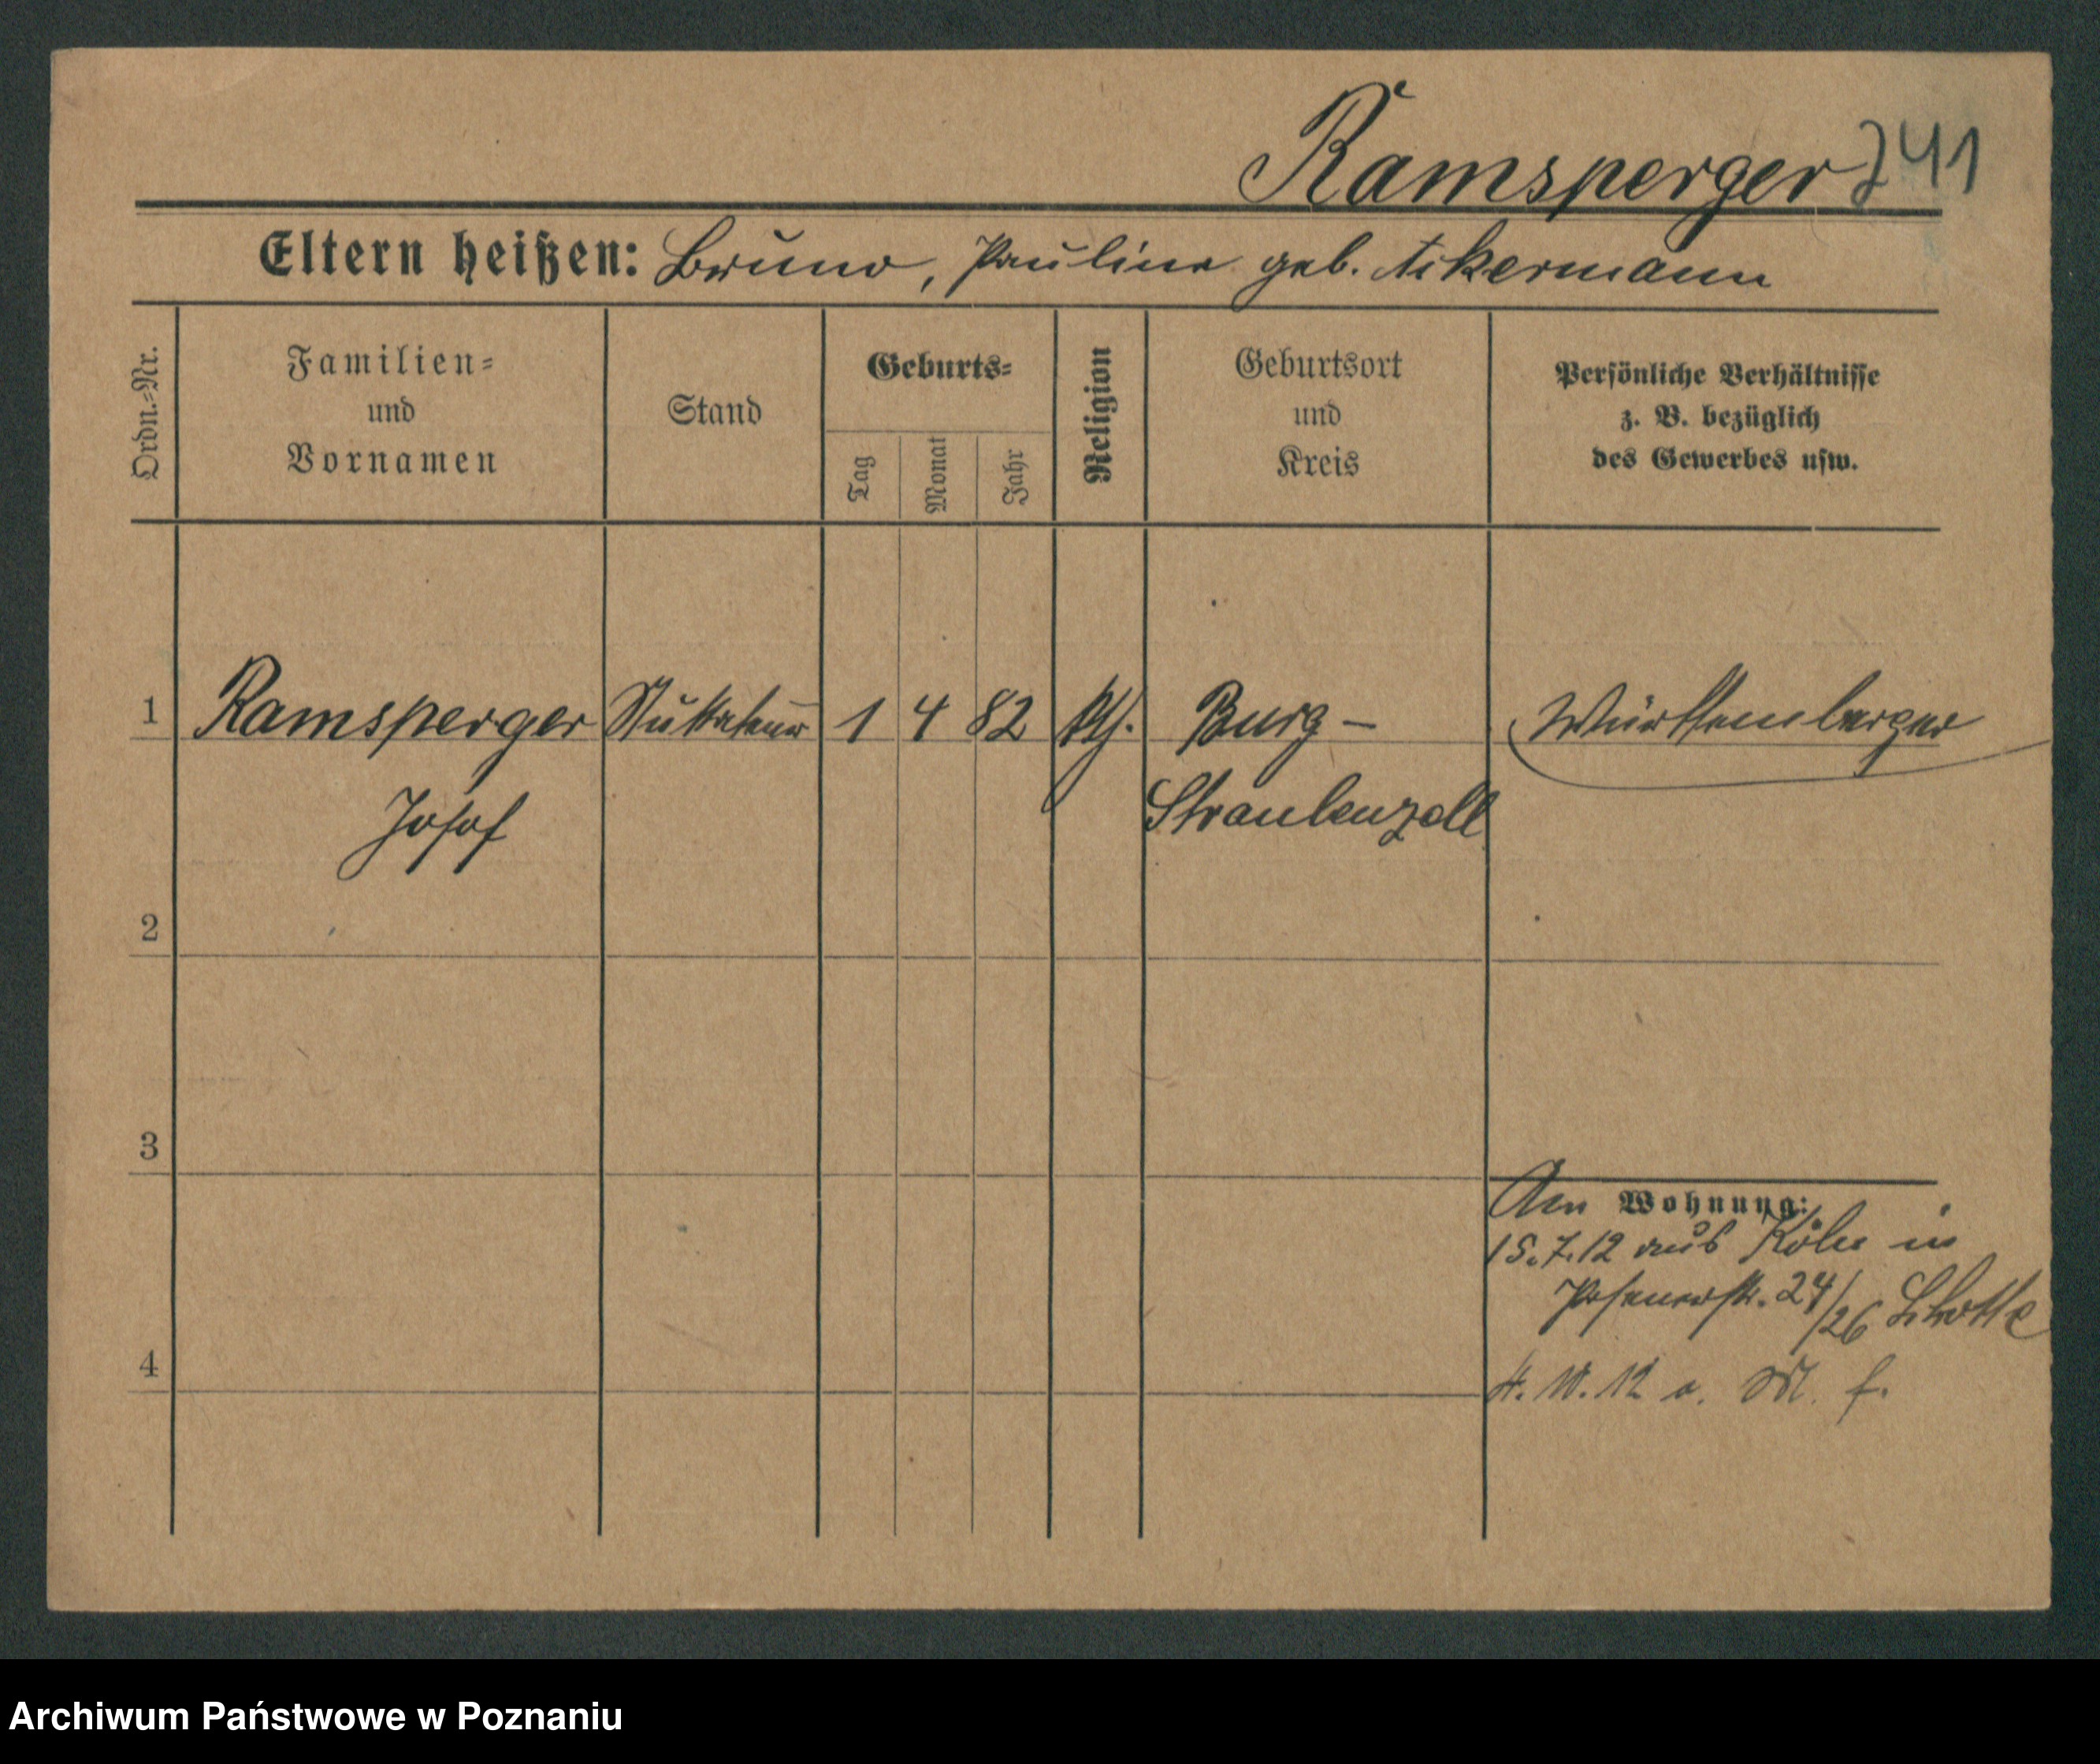 Ramsperger 741
Eltern heißen: Bruno, Pauline geb. Ackermann
Ordn.-Nr.
Familien-
und
Vornamen
Stand
Geburts-
Tag
Monat
Jahr
Religion
Geburtsort
und
Kreis
Persönliche Verhältnisse
z. B. bezüglich
des Gewerbes usw.
1 Ramsperger Stukkateur 1 4 82 kth. Burg- Württemberger
Josef Straubenzell
2
3
Am Wohnung:
15.7.12 aus Köln in
Posenerstr. 24/26
4
4. 10. 12 a.
Archiwum Państwowe w Poznaniu